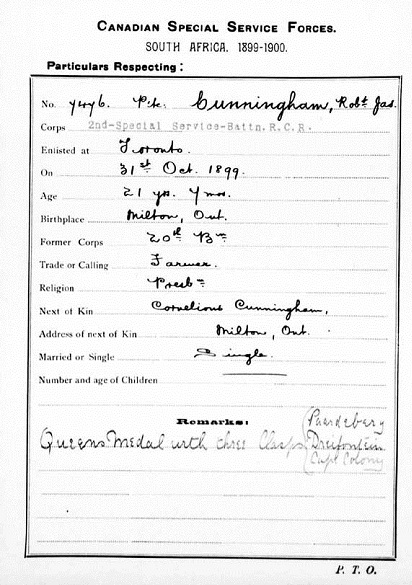 CANADIAN SPECIAL SERVICE FORCES.
SOUTH AFRICA. 1899-1900.
Particulars Respecting:
No. 7476. Pte. Cunningham, Robt Jas.
Corps 2nd-Special Service-Battn.R.C.R.
Enlisted at Toronto.
On 31st Oct. 1899.
Age 21 yrs. 7 mos.
Birthplace Milton, Ont.
Former Corps 20th Bn
Trade or Calling Farmer.
Religion Presbn
Next of Kin Cornelious Cunningham,
Address of next of Kin Milton, Ont.
Married or Single Single.
Number and age of Children
Remarks:
Queens Medal with three Clasps
Paardeberg
Dreifontein
Cape Colony
P. T. O.